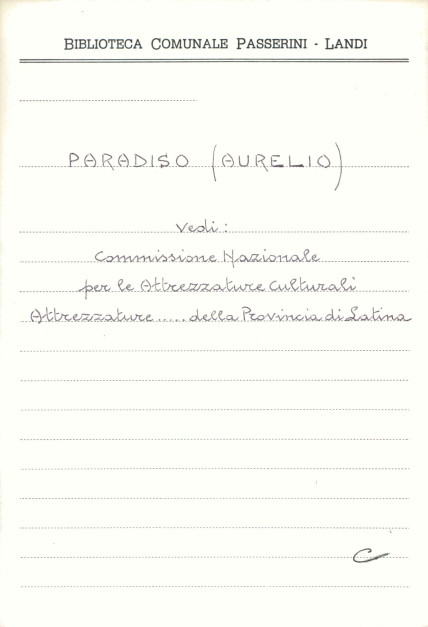 BIBLIOTECA COMUNALE PASSERINI - LANDI
PARADISO (AURELIO)
Vedi:
Commissione Nazionale
per le Attrezzature Culturali
Attrezzature ..... della Provincia di Latina
C